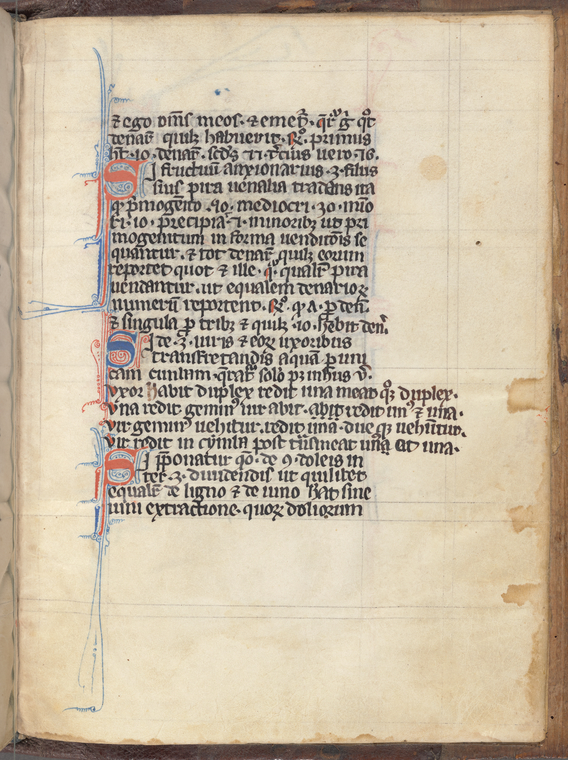 ⁊ ego om̅s meos · ⁊ emet̅ · q̅r̅ g̊ q̊t
denar̅ quilꝫ habuerit · R̸̊ · primus
h̅t · 10 · denar̅ · sc̅ds 21 · t̅cius uero · 16 ·
Si fructuum auxionarius · 3 · filiis
suis pira uenalia tradens ita
ꝙ p̅mogēito · 40 · mediocri · 30 · mīo
ri · 10 · precipiat minoribꝫ ut pri
mogenitum in forma uenditōis se
quantur · ⁊ tot denar̅ quilꝫ eorum
reportet quot ⁊ ille · qualit̅ pira
uendantur · ut equalem denarioꝝ
numerū reportent · R̸̊ · ꝙ
⁊ singula p̅ tribꝫ ⁊ quilꝫ · 10 · h̅ebit den̅ ·
Si de · 3 · uiris ⁊ eoꝝ uxoribus
transfretandis aquam p̱ uni
cam cimbam · q̅rat̅
vxor habit duplex redit una meat q̊ꝫ duplex ·
vna redit gemini uir abit · abit redit un̅ ⁊ una ·
vir geminus uehitur · redit una · due qꝫ uehūtur ·
vir redit in cymba post trn̅smeat una et una ·
Si p̅ponatur qō · de 9 · doleis in
ter · 3 · diuidendis ut quilibet
equalit̅ de ligno ⁊ de uino sine
uini extractione · quoꝝ doliorum